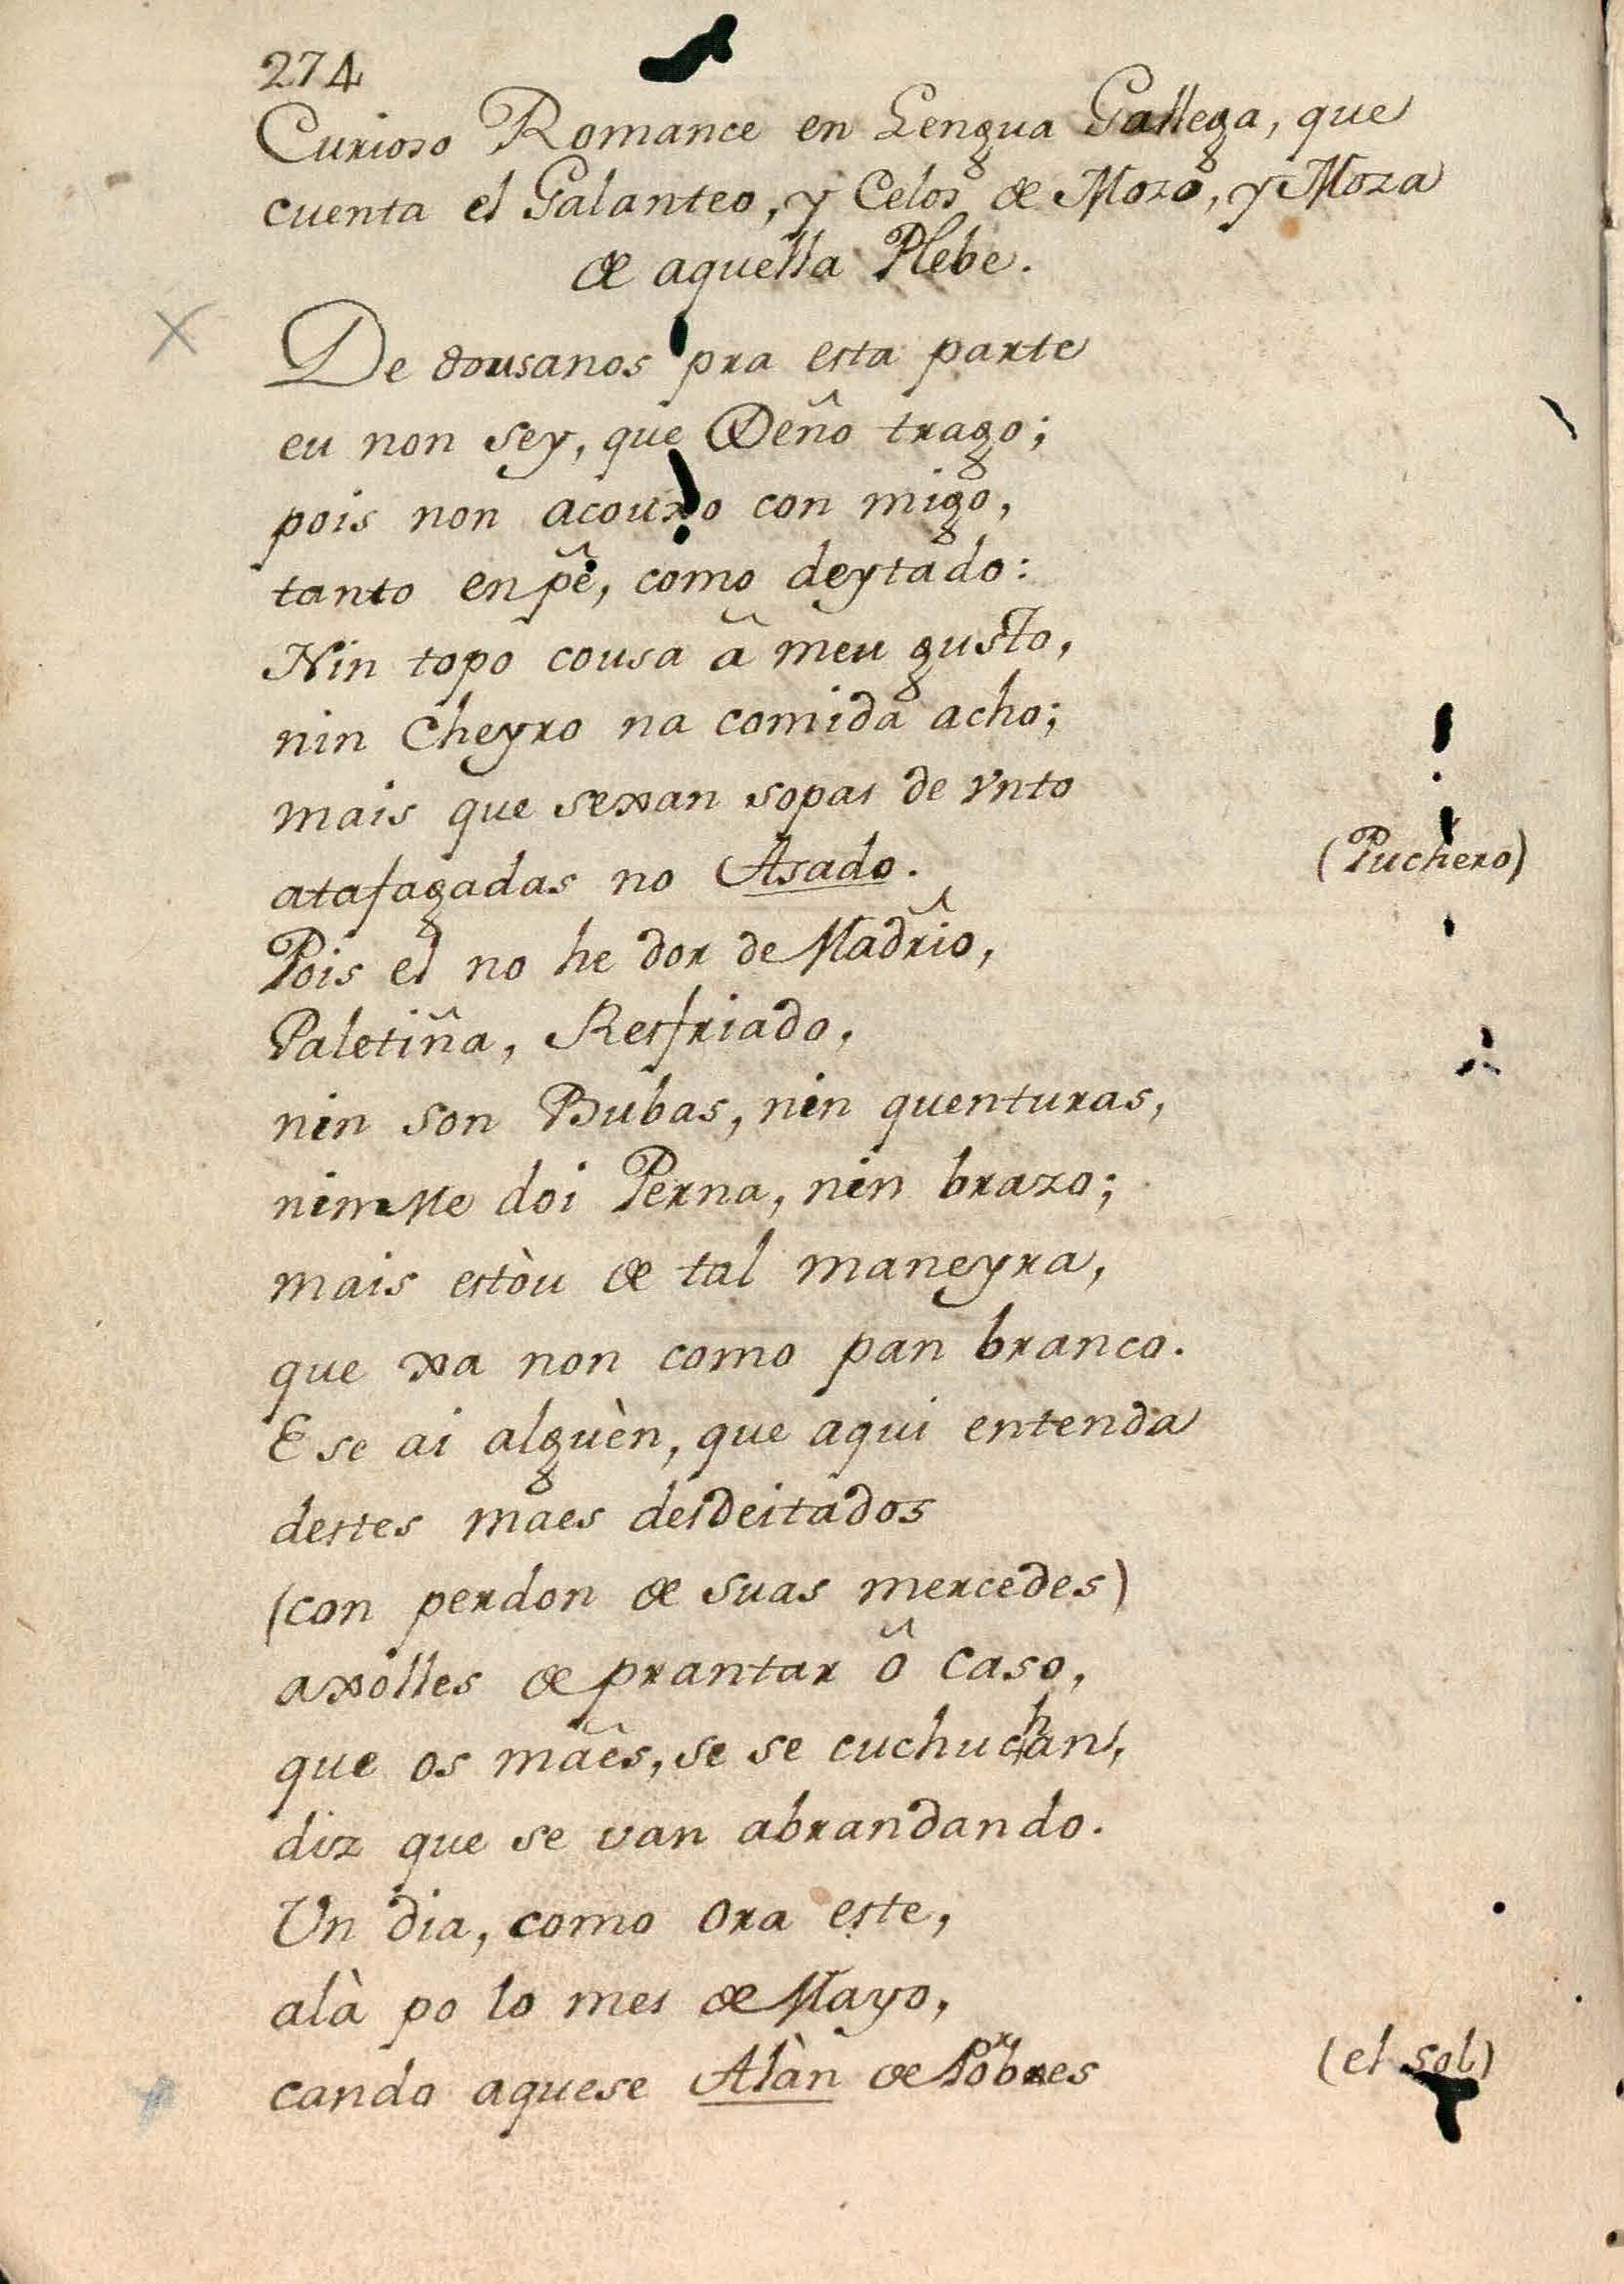 274
Curioso Romance en Lengua Gallega, que
cuenta el Galanteo, y Celos de Mozo, y Moza
de aquella Plebe.
De dousanos pra esta parte
eu non sey, que Deño trago;
pois non acouxo con migo,
tanto en pê, como deytado:
Nin topo cousa â meu gusto,
nin Cheyro na comida acho;
mais que sexan sopas de Ynto
atafagadas no Asado. (Puchero)
Pois el no he dor de Madrîo,
Paletiña, Resfriado,
nin son Bubas, nin quenturas,
nin Me doi Perna, nin brazo;
mais estòu de tal maneyra,
que xa non como pan branco.
E se ai alguèn, que aqui entenda
destes maes desdeitados
(con perdon de suas mercedes)
axolles de prantar ô caso,
que os maês, se se cuchuchan,
diz que se van abrandando.
Un dia, como ora este,
alà po lo mes de Mayo,
cando aquese Alàn de Pobres (el sol)